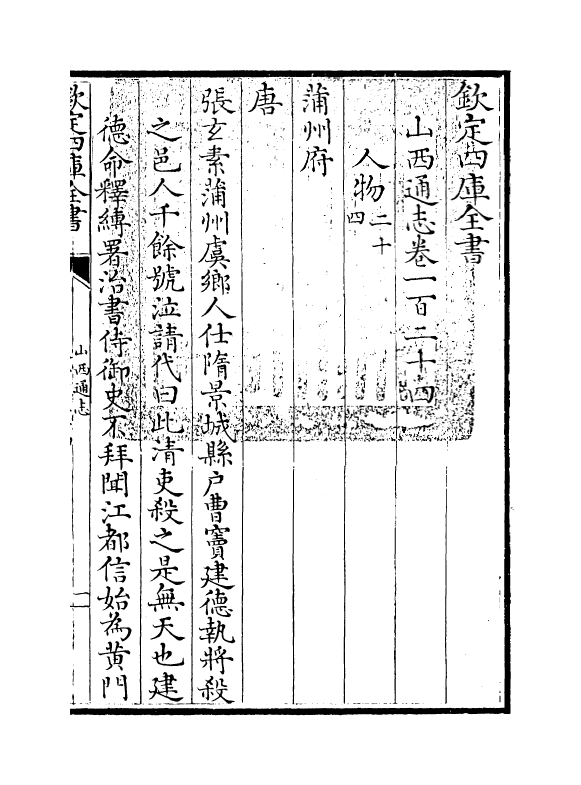 欽定四庫全書
山西通志卷一百二十四
人物二十四
蒲州府
唐
張玄素蒲州虞鄉人仕隋景城縣户曹竇建德執將殺
之邑人千餘號泣請代曰此清吏殺之是無天也建
德命釋縛署治書侍御史不拜聞江都信始為黃門
欽定四庫全書
山西通志